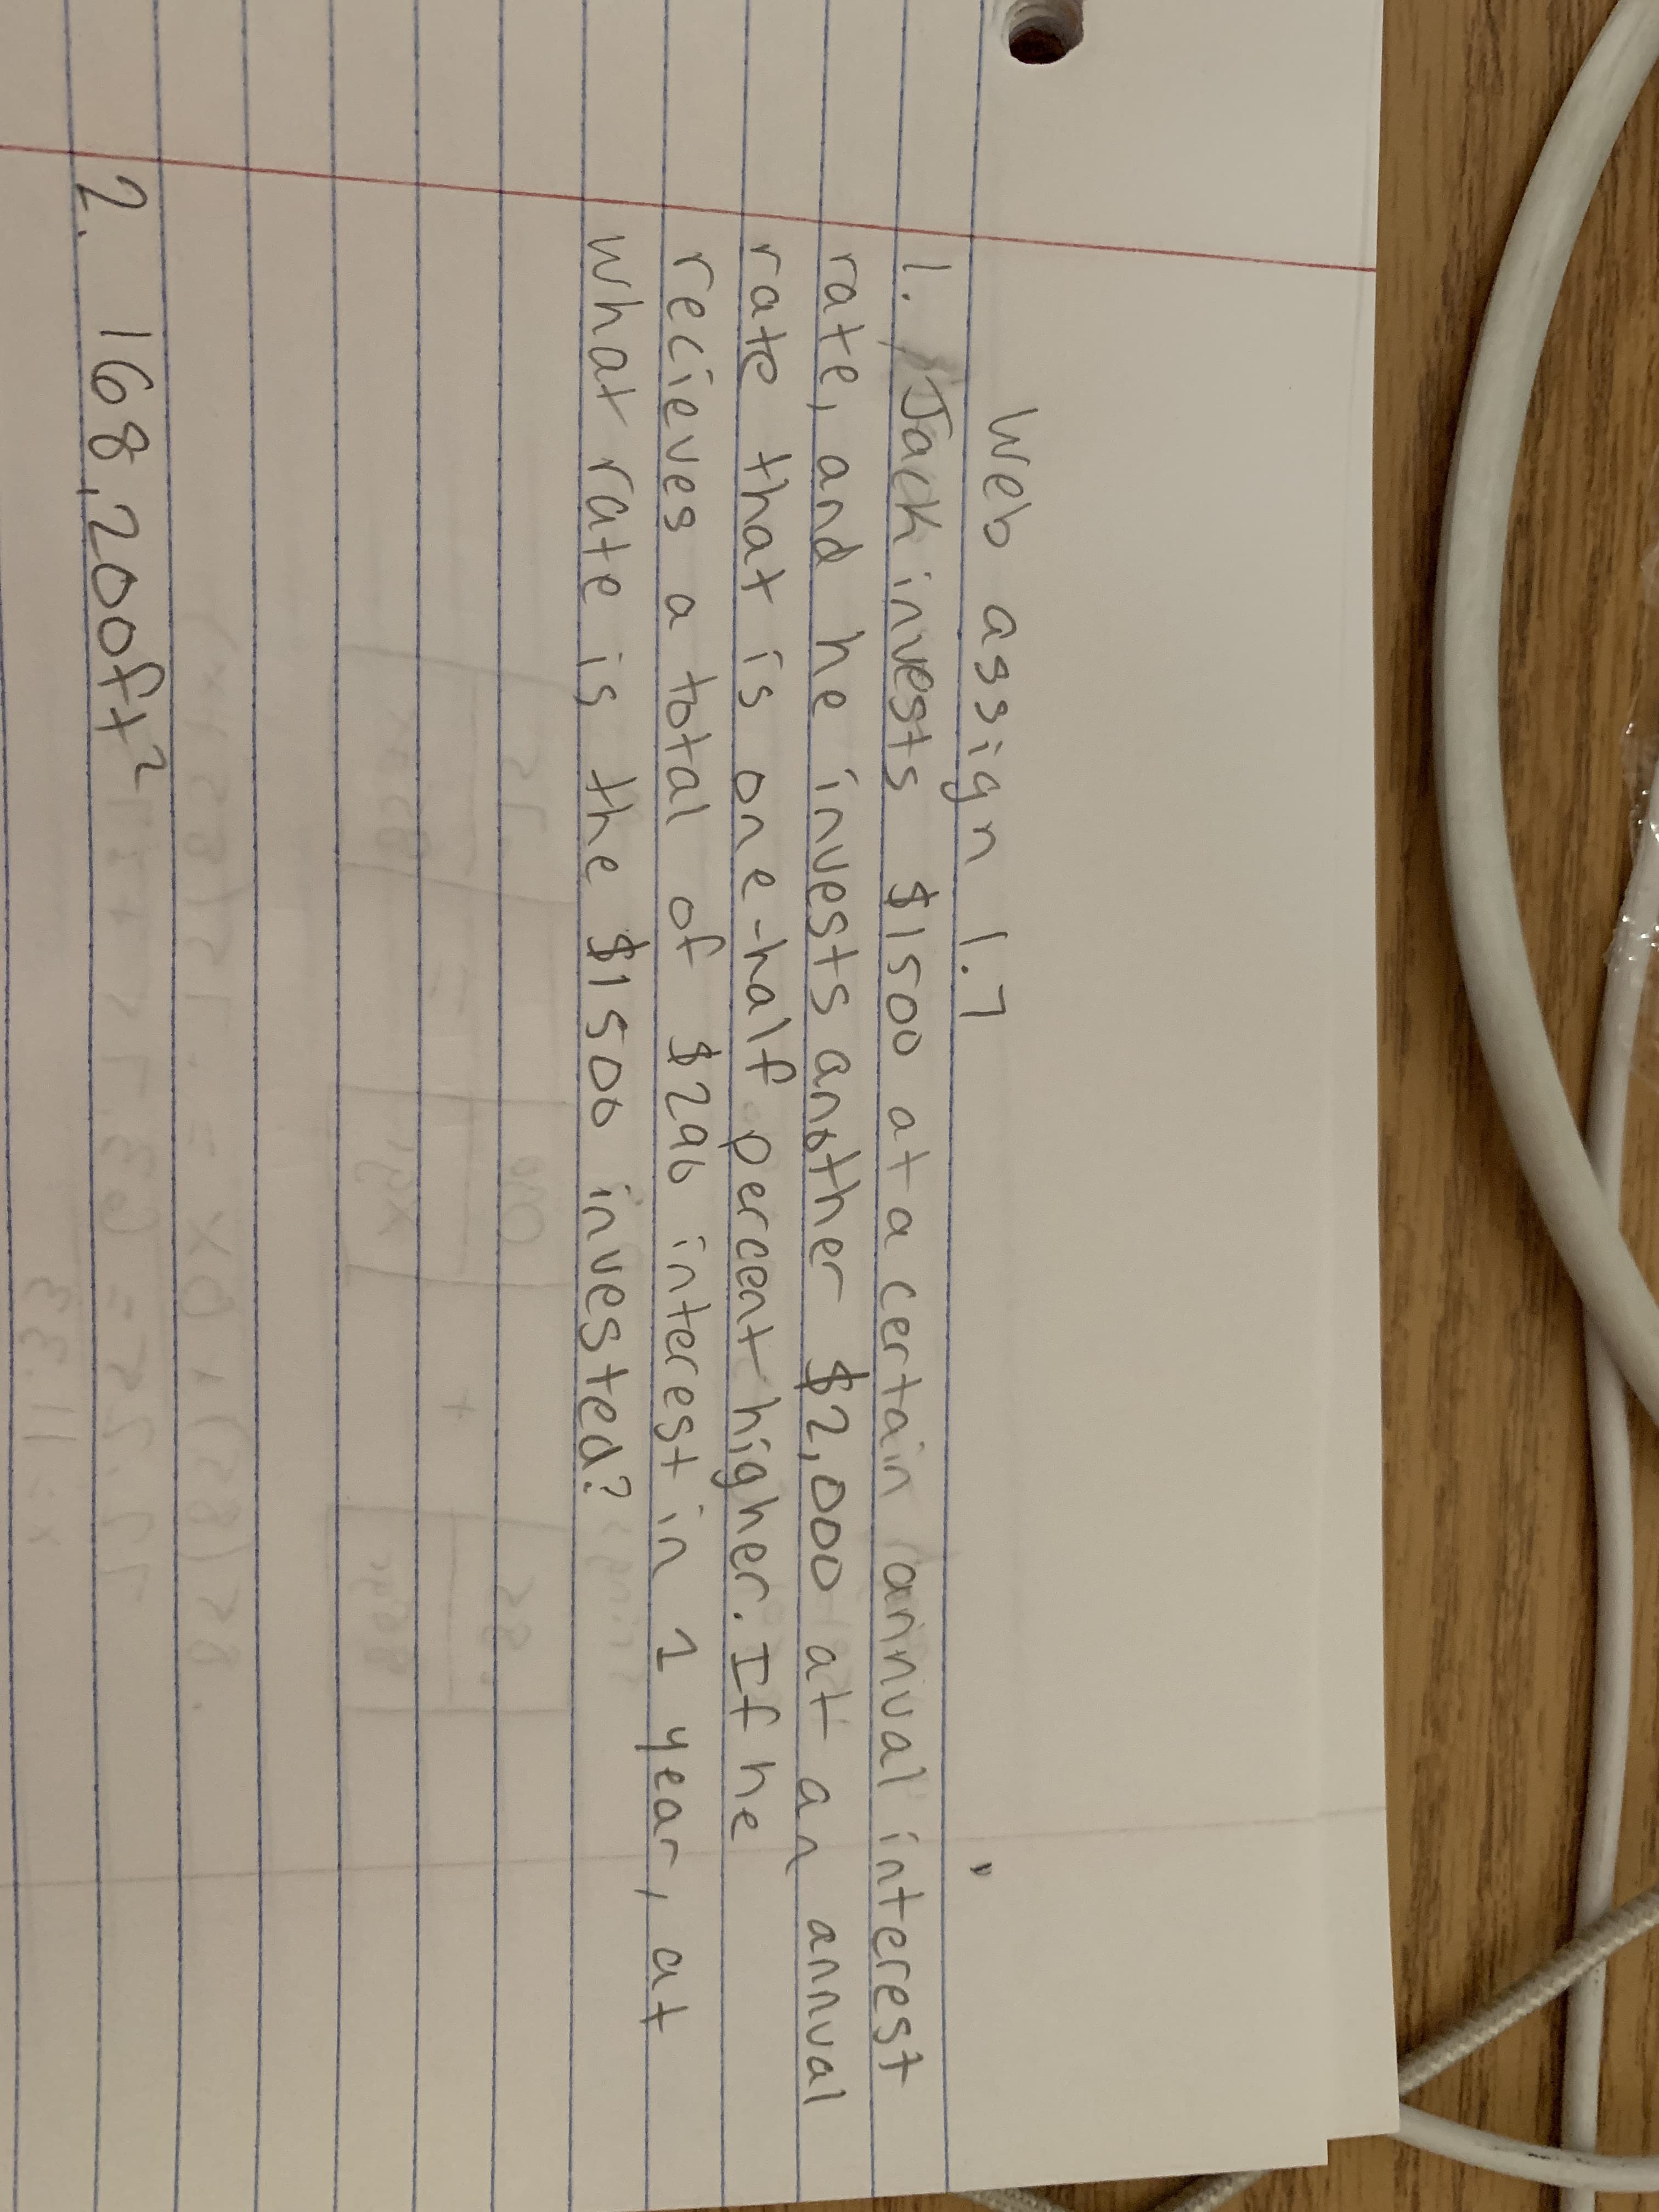 Web assign 1.7
1. Jack invests $1500 at a certain annual interest
rate, and he invests another $2,000 at an annual
rate that is one-half percent higher. If he
recieves a total of $290 interest in 1 year, at
what rate is the $1500 invested?
2. 168,200ft²